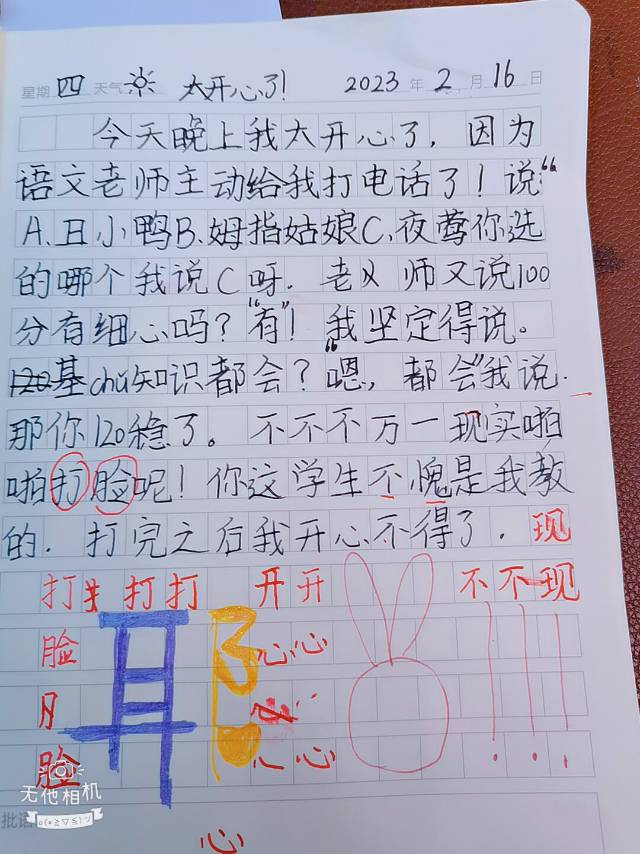 星期 四 天气 太开心了! 2023年 2月 16日
今天晚上我太开心了，因为
语文老师主动给我打电话了！说:“
A.丑小鸭B.姆指姑娘C.夜莺你选
的哪个我说C呀. 老师又说100
分有细心吗？“有”！我坚定得说。
120基chǔ知识都会？“嗯，都会”我说.
那你120稳了。不不不万一现实啪
啪打脸呢！你这学生不愧是我教
的. 打完之后我开心不得了. 现
打 打打 开开 不不现
脸 心心
月
脸 心心
无他相机
批语
心